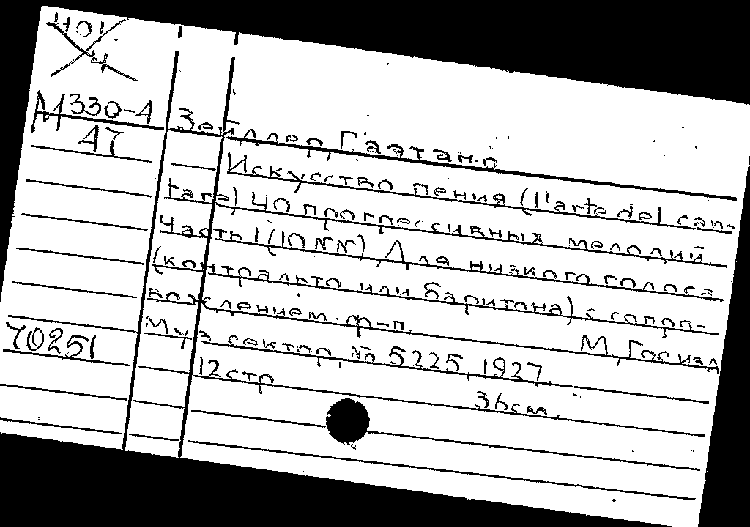 401
4
М330-4
47
Зейдлер, Гаэтано
Искусство пения (l'arte del can-
tare) 40 прогрессивных мелодий
Часть 1 (10 NN) Для низкого голоса
(контральто или баритона) с сопро-
вождением ф-п. М, Госизд
Муз сектор, № 5225, 1927.
12 стр 36 см.
70251